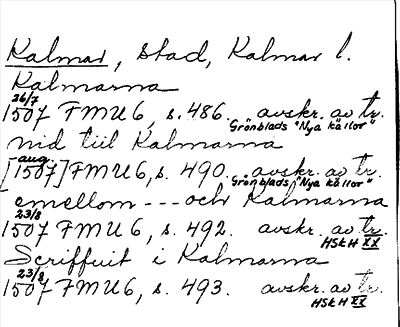 Kalmar, stad, Kalmar l.
Kalmarna
26/7
1507 FMU 6, s. 486. avskr. av tr.
Grönblads "Nya källor"
nid tiil Kalmarna
-aug.
[1507] FMU 6, s. 490. avskr. av tr.
Grönblads "Nya källor"
emellom --- och Kalmarna
23/8
1507 FMU 6, s. 492. avskr. av tr.
HSkH XX
Scriffuit i Kalmarna
23/8
1507 FMU 6, s. 493. avskr. av tr.
HSkH XX